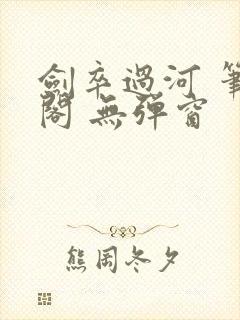 劍卒過河 筆
閣 無彈窗
熊岡冬夕